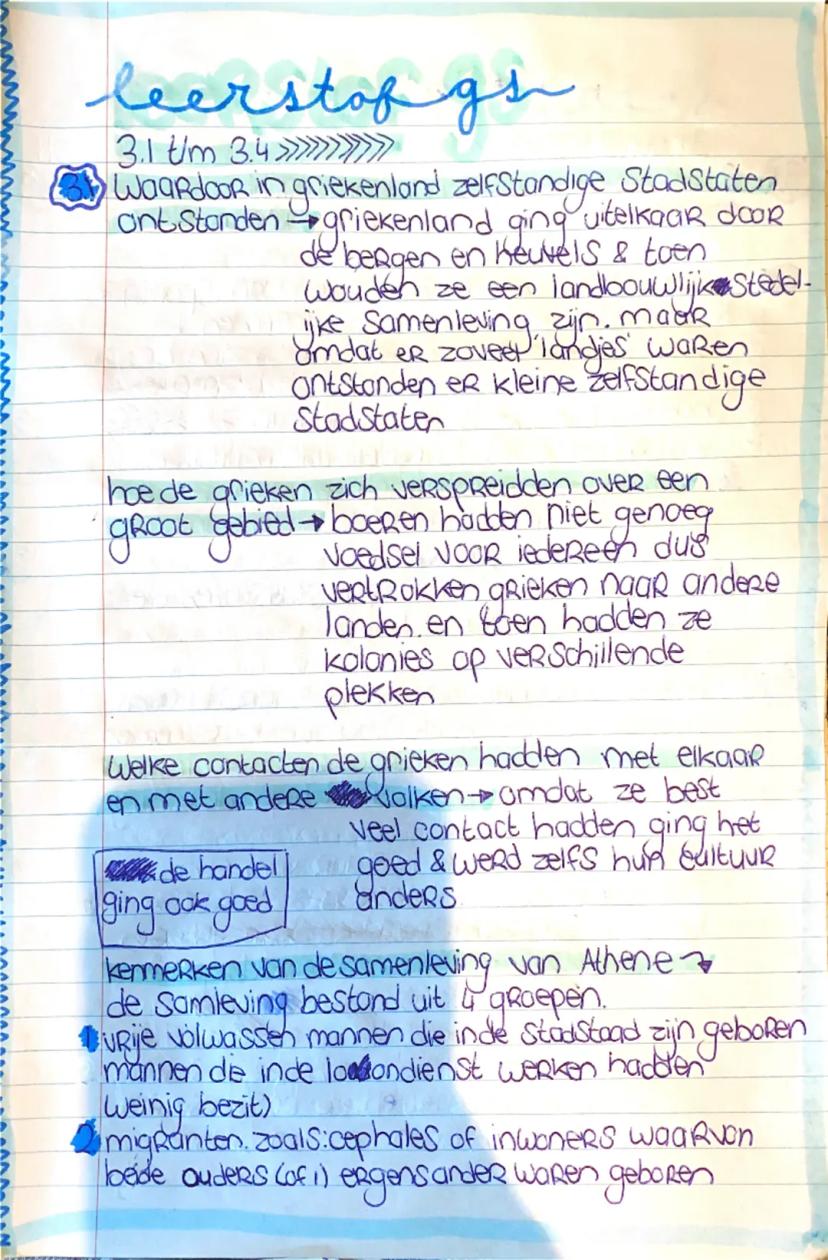 leerstof gs
3.1 t/m 3.4 >>>>>>>>>>
3.1 Waardoor in griekenland zelfstandige Stadstaten
ontstonden → griekenland ging uitelkaar door
de bergen en heuvels & toen
wouden ze een landbouwlijk stedel-
ijke samenleving zijn. maar
omdat er zoveel 'landjes' waren
ontstonden er kleine zelfstandige
stadstaten
hoe de grieken zich verspreidden over een
groot gebied → boeren hadden niet genoeg
voedsel voor iedereen dus
vertrokken grieken naar andere
landen. en toen hadden ze
kolonies op verschillende
plekken
Welke contacten de grieken hadden met elkaar
en met andere volken → omdat ze best
veel contact hadden ging het
goed & werd zelfs hun cultuur
anders
de handel
ging ook goed
kenmerken van de samenleving van Athene
de samleving bestond uit 4 groepen.
1 vrije volwassen mannen die in de stadstaad zijn geboren
mannen die in de loondienst werken hadden
weinig bezit)
2 migranten. zoals: cephales of inwoners waarvan
beide ouders (of 1) ergens ander waren geboren